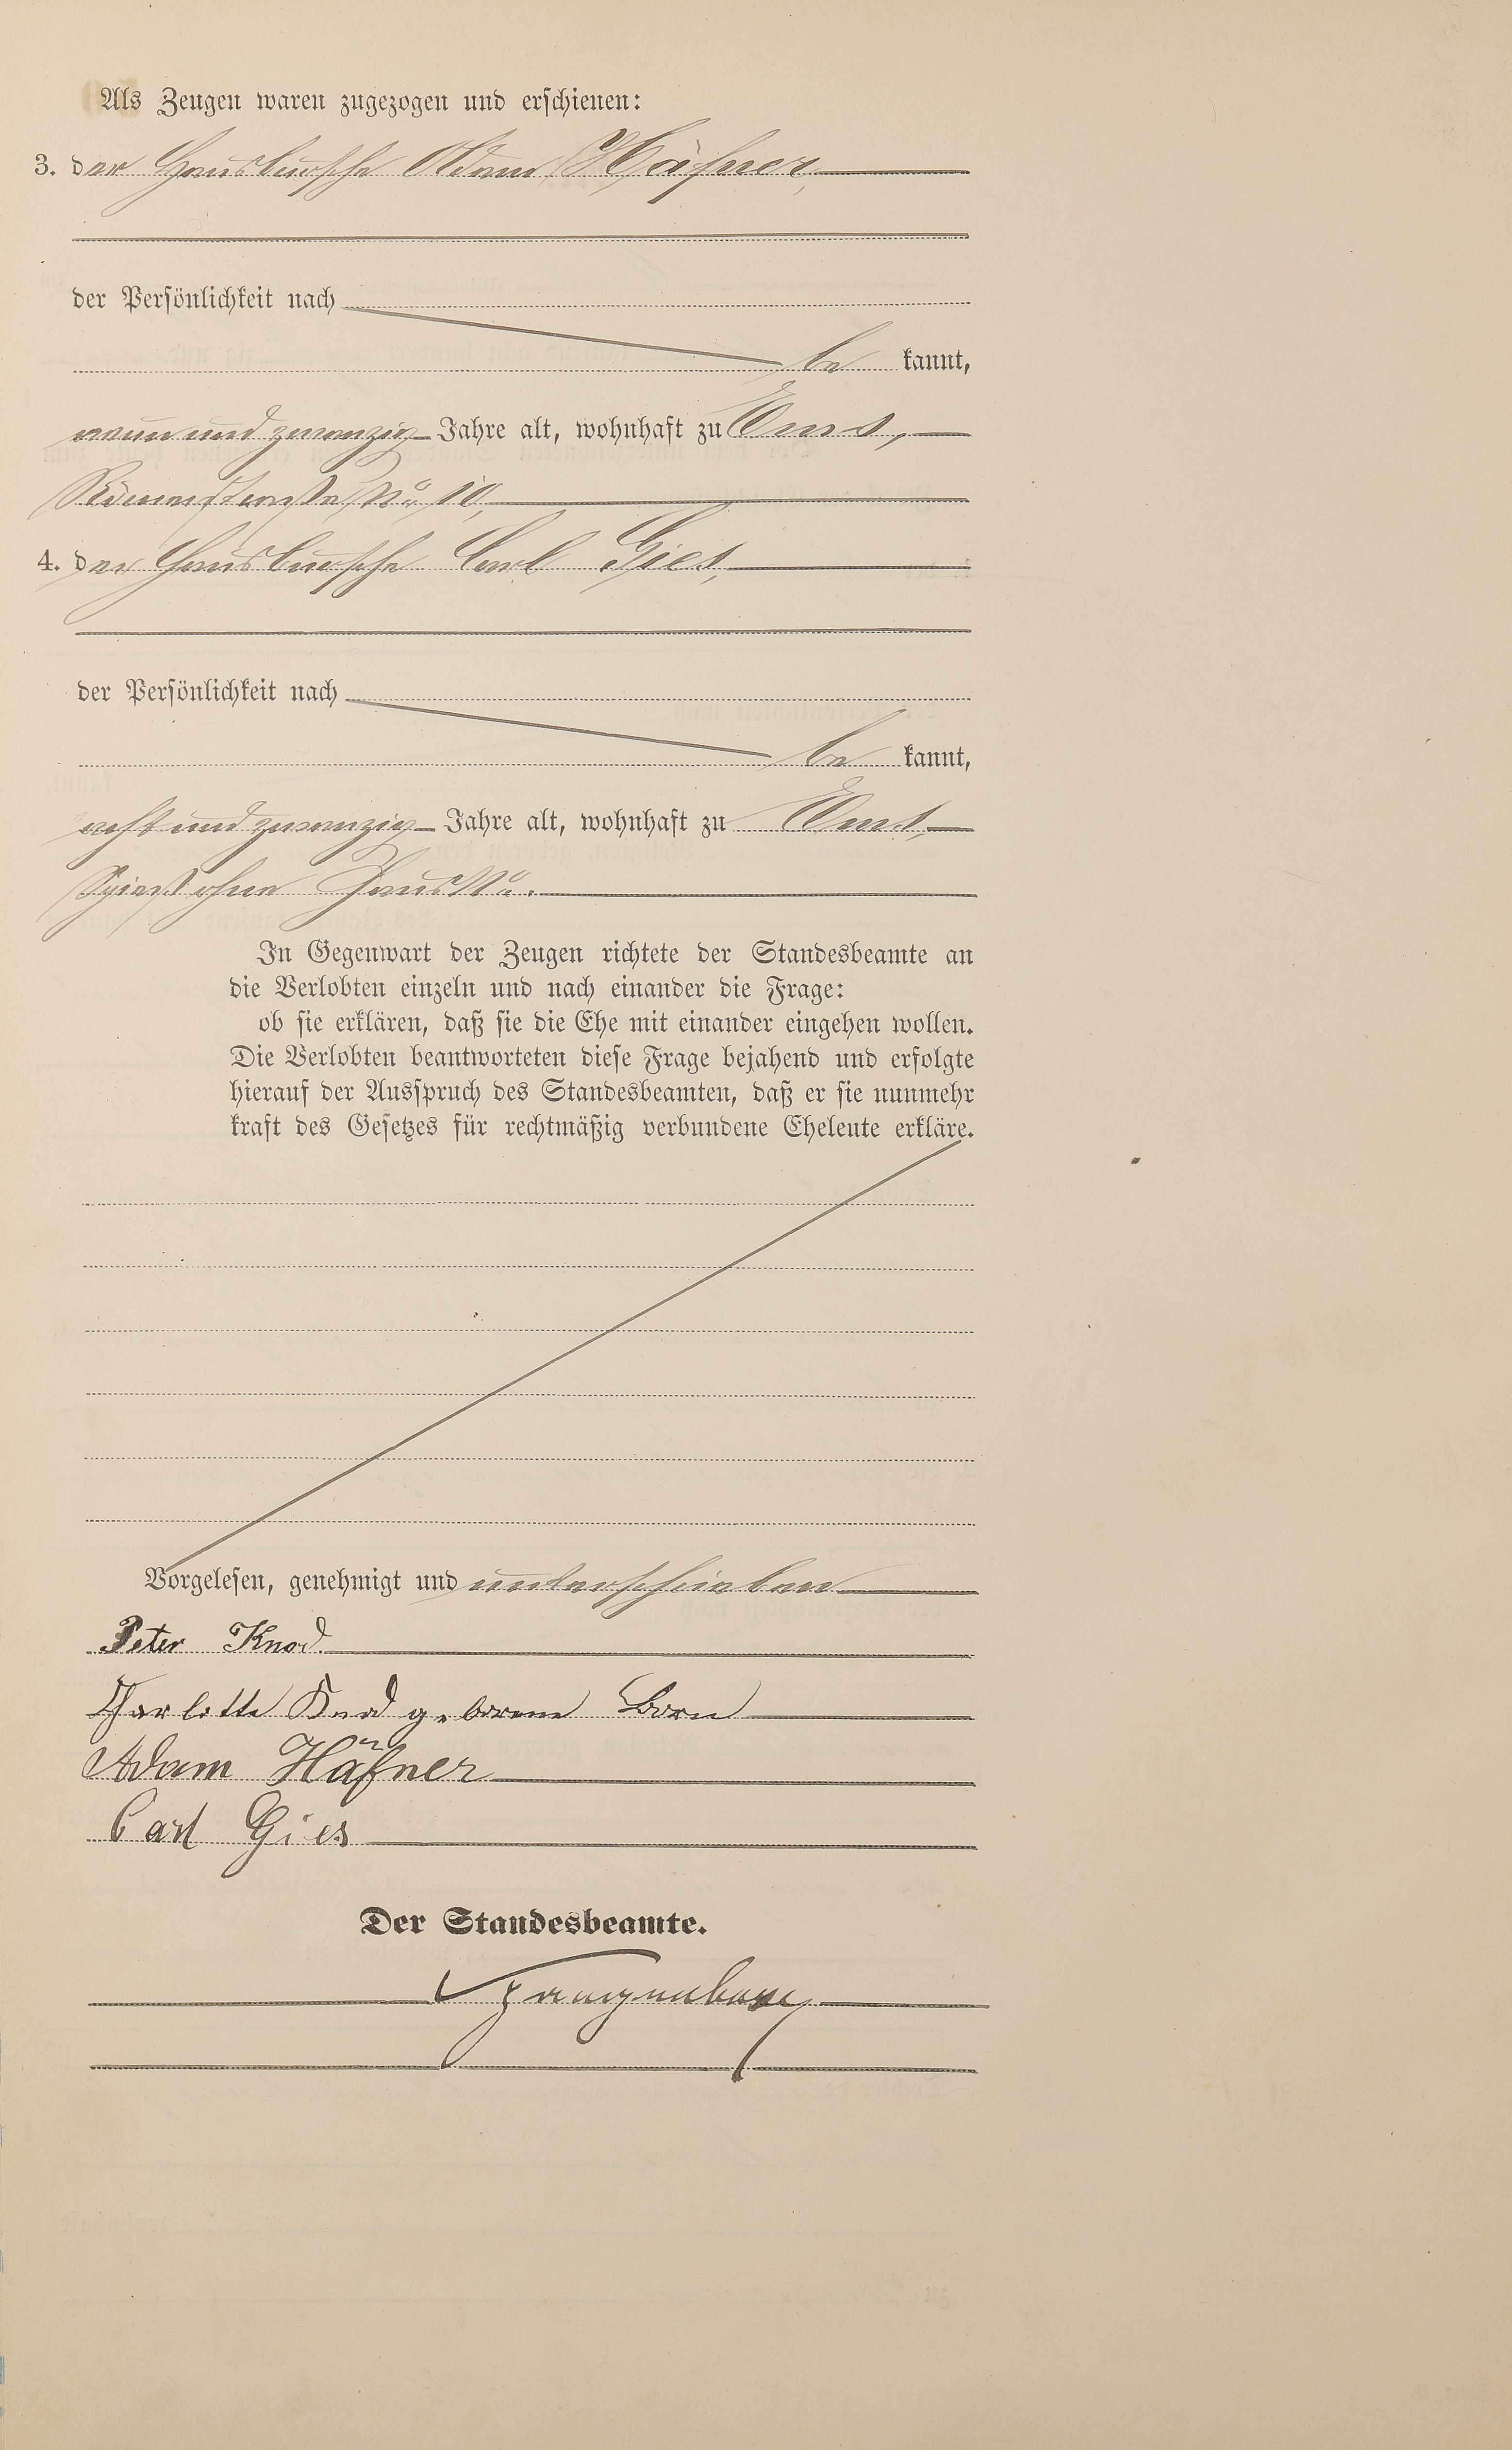 Als Zeugen waren zugezogen und erschienen:
3. der Hausbursche Adam Häfner,
der Persönlichkeit nach
be kannt,
neun und zwanzig Jahre alt, wohnhaft zu Ems,
Römerstraße No. 10,
4. der Hausbursche Carl Gies,
der Persönlichkeit nach
be kannt,
acht und zwanzig Jahre alt, wohnhaft zu Ems,
Spieß ohne Haus No.
In Gegenwart der Zeugen richtete der Standesbeamte an
die Verlobten einzeln und nach einander die Frage:
ob sie erklären, daß sie die Ehe mit einander eingehen wollen.
Die Verlobten beantworteten diese Frage bejahend und erfolgte
hierauf der Ausspruch des Standesbeamten, daß er sie nunmehr
kraft des Gesetzes für rechtmäßig verbundene Eheleute erkläre.
Vorgelesen, genehmigt und unterschrieben
Peter Knod
Charlotte Knod geborene Born
Adam Häfner
Carl Gies
Der Standesbeamte.